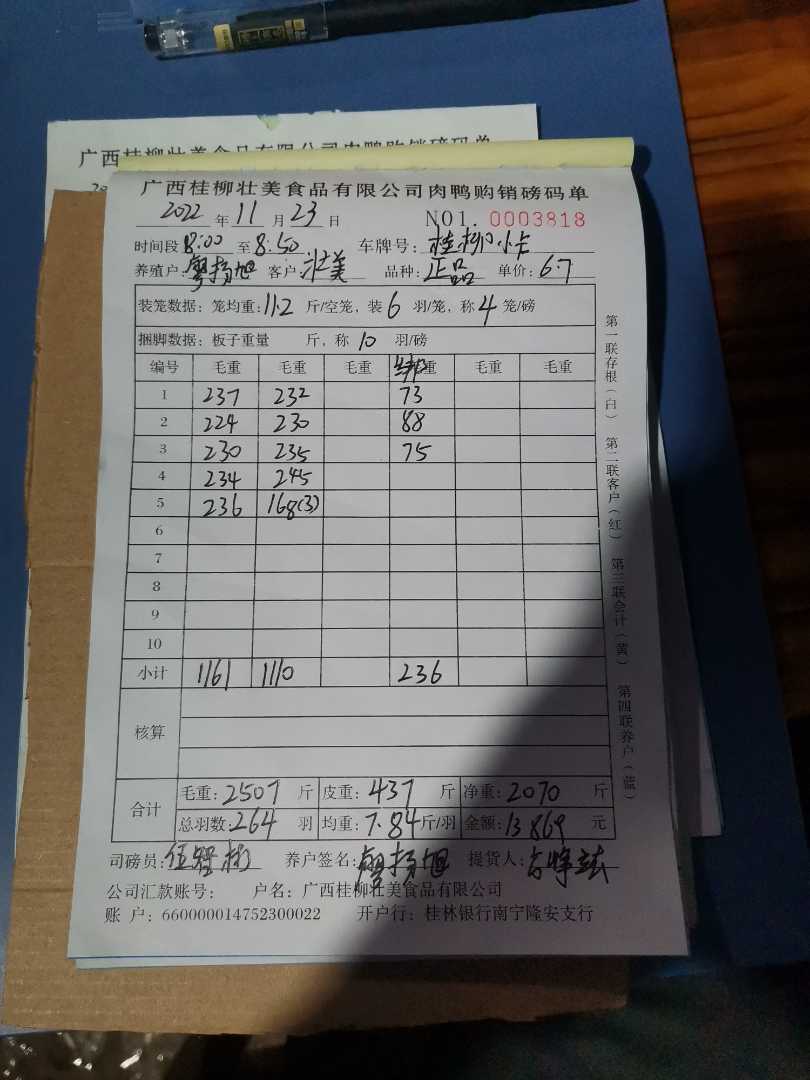 广西桂柳壮美食品有限公司肉鸭购销磅码单
广西桂柳壮美食品有限公司肉鸭购销磅码单
2022 年 11 月 23 日 NO1. 0003818
时间段 8:00 至 8:50 车牌号: 桂柳小卡
养殖户: 廖扬旭 客户: 壮美 品种: 正品 单价: 6.7
装笼数据: 笼均重: 11.2 斤/空笼, 装 6 羽/笼, 称 4 笼/磅
捆脚数据: 板子重量 斤, 称 10 羽/磅
编号 毛重 毛重 毛重 重 毛重 毛重
1 237 232 73
2 224 230 88
3 230 235 75
4 234 245
5 236 168(3)
6
7
8
9
10
小计 1161 1110 236
核算
合计 毛重: 2507 斤 皮重: 437 斤 净重: 2070 斤
总羽数: 264 羽 均重: 7.84 斤/羽 金额: 13869 元
司磅员: 养户签名: 廖扬旭 提货人:
公司汇款账号: 户名: 广西桂柳壮美食品有限公司
账 户: 660000014752300022 开户行: 桂林银行南宁隆安支行
第一联存根(白) 第二联客户(红) 第三联会计(黄) 第四联养户(蓝)